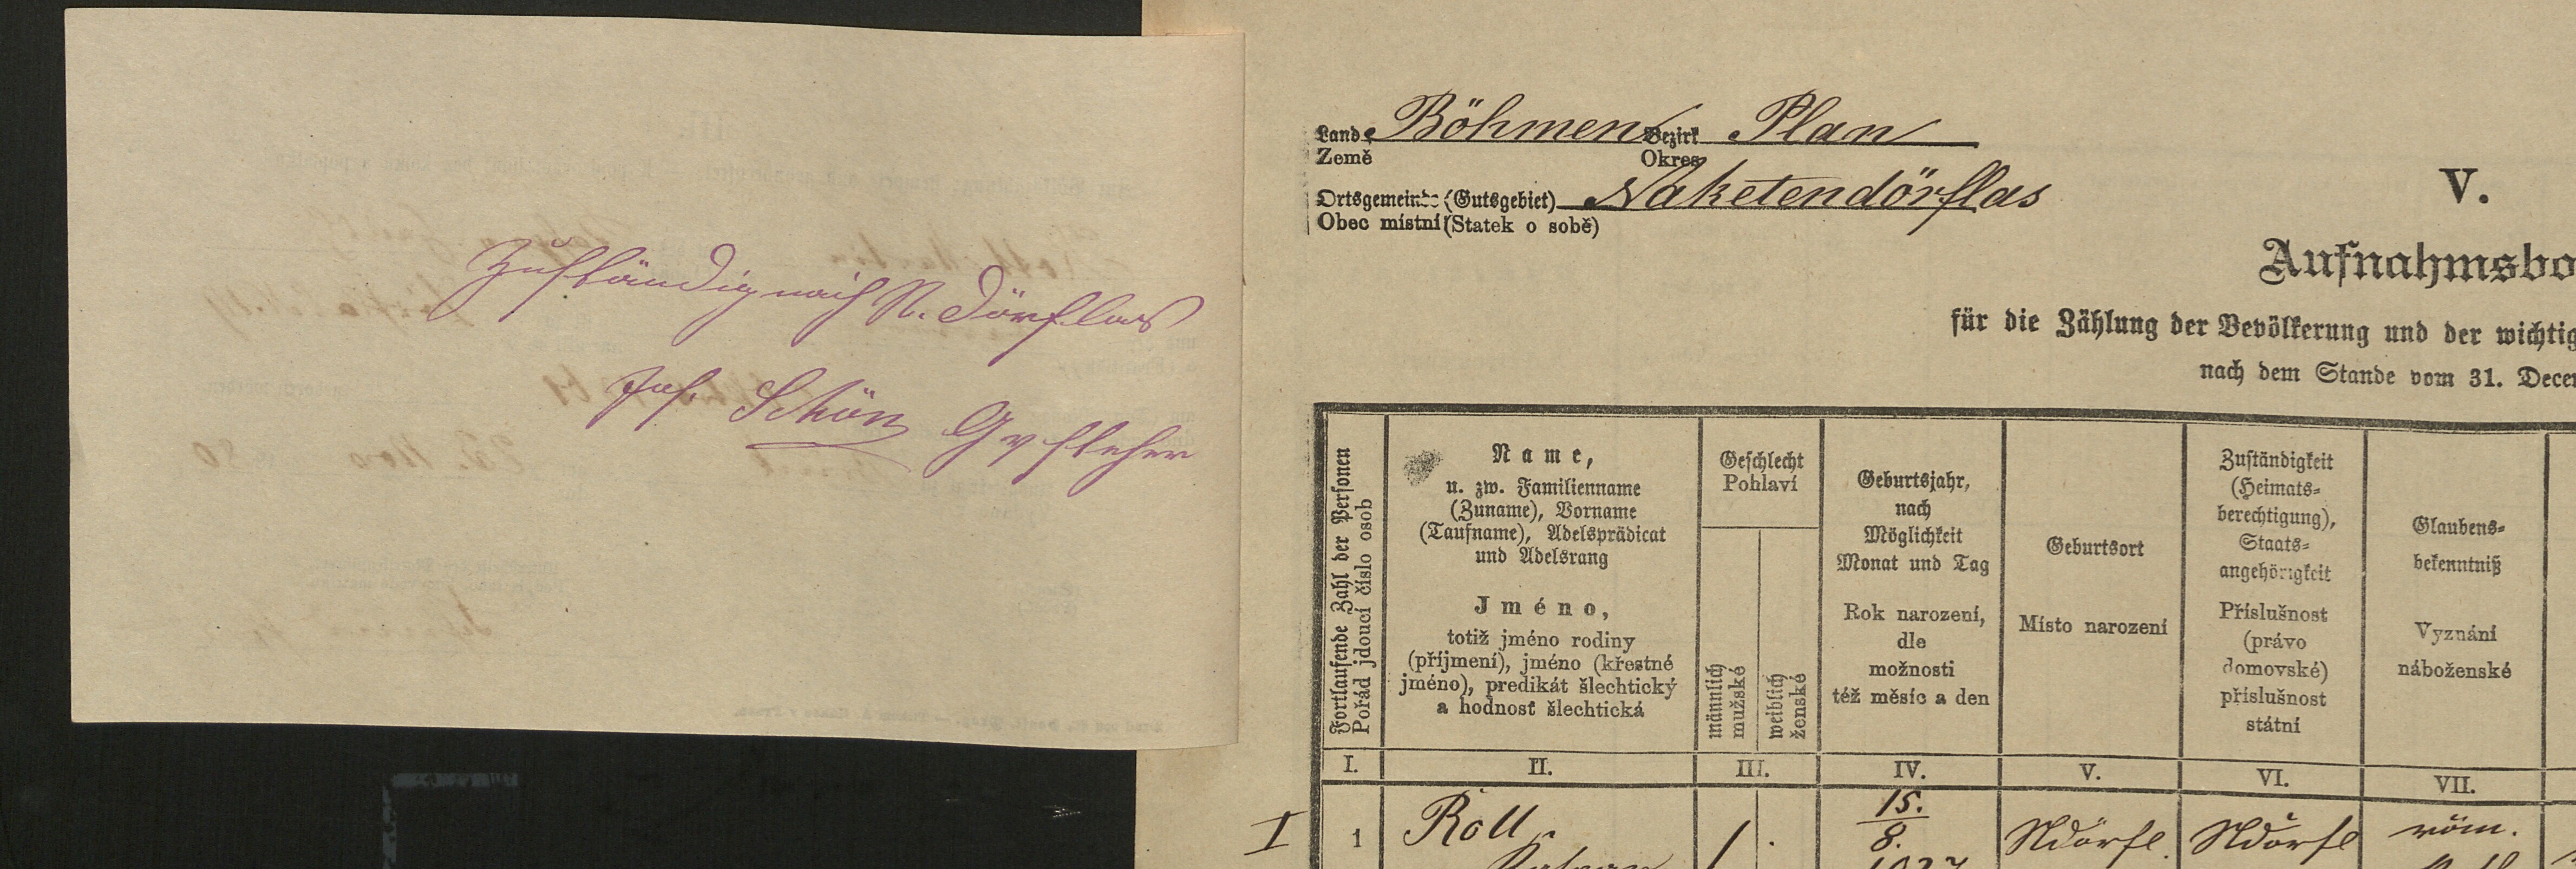 Zuständig nach N. Dörflas
Jos. Schön
Land Böhmen Bezirk Plan
Země Okres
Ortsgemeinde (Gutsgebiet) Naketendörflas
Obec místní (Statek o sobě)
V.
Aufnahmsbo
für die Zählung der Bevölkerung und der wichtig
nach dem Stande vom 31. Decem
Fortlaufende Zahl der Personen
Pořád jdoucí číslo osob
Name,
u. zw. Familienname
(Zuname), Vorname
(Taufname), Adelsprädicat
und Adelsrang
Jméno,
totiž jméno rodiny
(příjmení), jméno (křestné
jméno), predikát šlechtický
a hodnost šlechtická
Geschlecht
Pohlaví
männlich
mužské
weiblich
ženské
Geburtsjahr,
nach
Möglichkeit
Monat und Tag
Rok narození,
dle
možnosti
též měsíc a den
Geburtsort
Místo narození
Zuständigkeit
(Heimats-
berechtigung),
Staats-
angehörigkeit
Příslušnost
(právo
domovské)
příslušnost
státní
Glaubens-
bekenntniß
Vyznání
náboženské
I. II. III. IV. V. VI. VII.
I 1 Roll 1 . 15. Ndörfl. Ndörfl röm.
8.